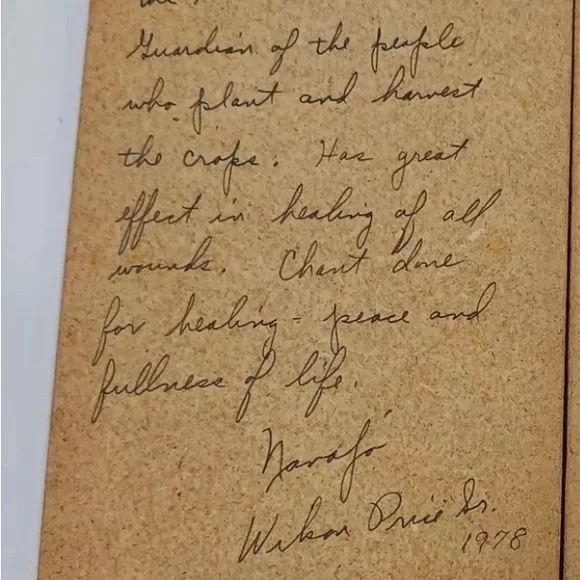 Guardian of the people
who plant and harvest
the crops. Has great
effect in healing of all
wounds. Chant done
for healing - peace and
fullness of life.
Navajó
Wilson Price Sr.
1978